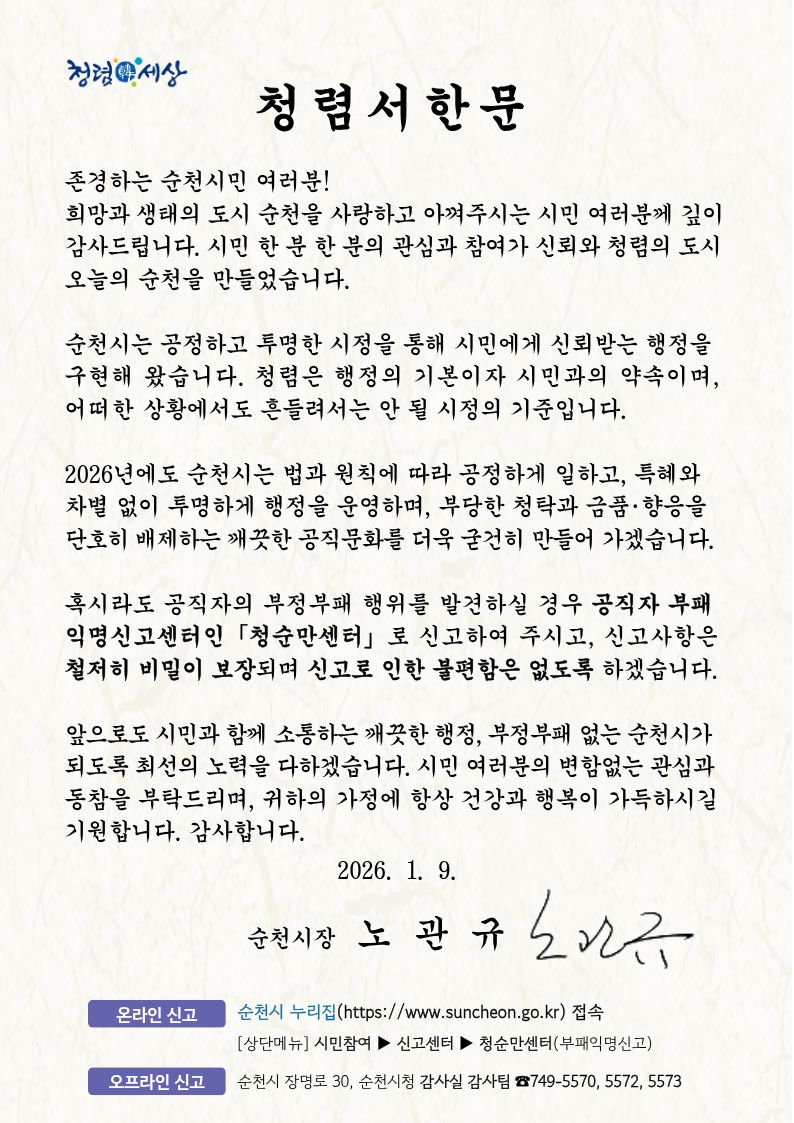 청렴韓세상
청렴서한문
존경하는 순천시민 여러분!
희망과 생태의 도시 순천을 사랑하고 아껴주시는 시민 여러분께 깊이
감사드립니다. 시민 한 분 한 분의 관심과 참여가 신뢰와 청렴의 도시
오늘의 순천을 만들었습니다.
순천시는 공정하고 투명한 시정을 통해 시민에게 신뢰받는 행정을
구현해 왔습니다. 청렴은 행정의 기본이자 시민과의 약속이며,
어떠한 상황에서도 흔들려서는 안 될 시정의 기준입니다.
2026년에도 순천시는 법과 원칙에 따라 공정하게 일하고, 특혜와
차별 없이 투명하게 행정을 운영하며, 부당한 청탁과 금품·향응을
단호히 배제하는 깨끗한 공직문화를 더욱 굳건히 만들어 가겠습니다.
혹시라도 공직자의 부정부패 행위를 발견하실 경우 공직자 부패
익명신고센터인「청순만센터」로 신고하여 주시고, 신고사항은
철저히 비밀이 보장되며 신고로 인한 불편함은 없도록 하겠습니다.
앞으로도 시민과 함께 소통하는 깨끗한 행정, 부정부패 없는 순천시가
되도록 최선의 노력을 다하겠습니다. 시민 여러분의 변함없는 관심과
동참을 부탁드리며, 귀하의 가정에 항상 건강과 행복이 가득하시길
기원합니다. 감사합니다.
2026. 1. 9.
순천시장 노 관 규 노관규
온라인 신고 순천시 누리집(https://www.suncheon.go.kr) 접속
[상단메뉴] 시민참여 ▶ 신고센터 ▶ 청순만센터(부패익명신고)
오프라인 신고 순천시 장명로 30, 순천시청 감사실 감사팀 ☎749-5570, 5572, 5573